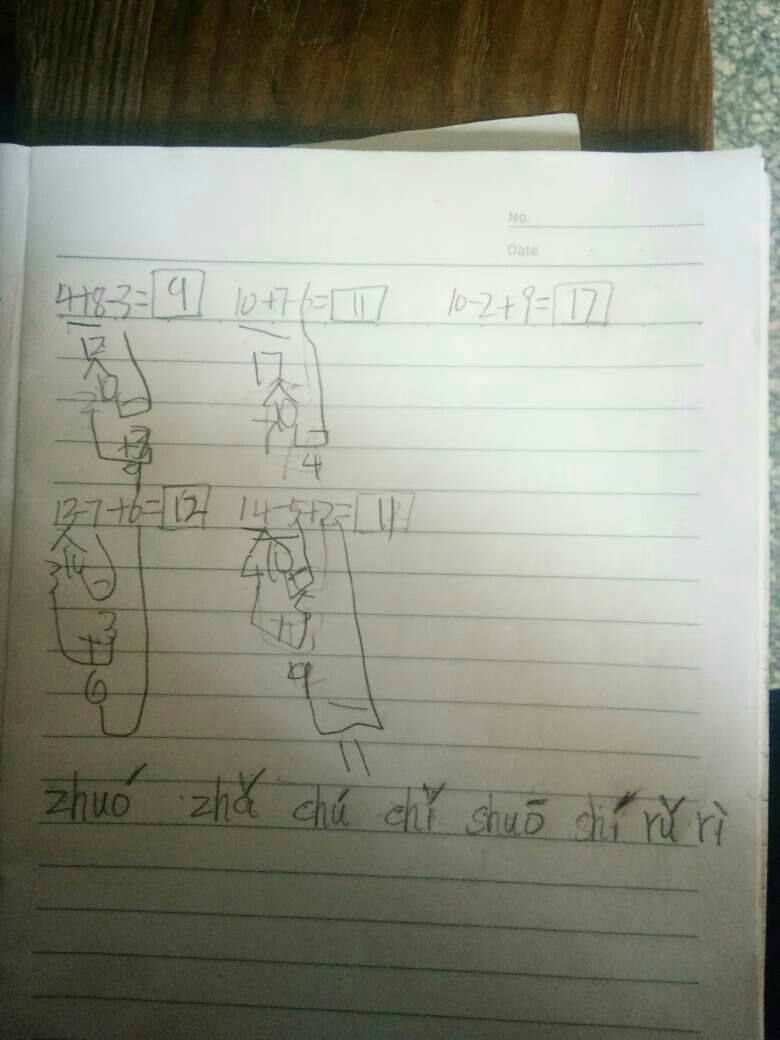 No.
Date
4+8-3=9 10+7-6=11 10-2+9=17
12 17
10 10
2 7
+7
9 4
13-7+6=12 14-5+2=11
3 10 4 10
+3
6 9
11
zhuó zhǎ chú chǐ shuō shí rǔ rì